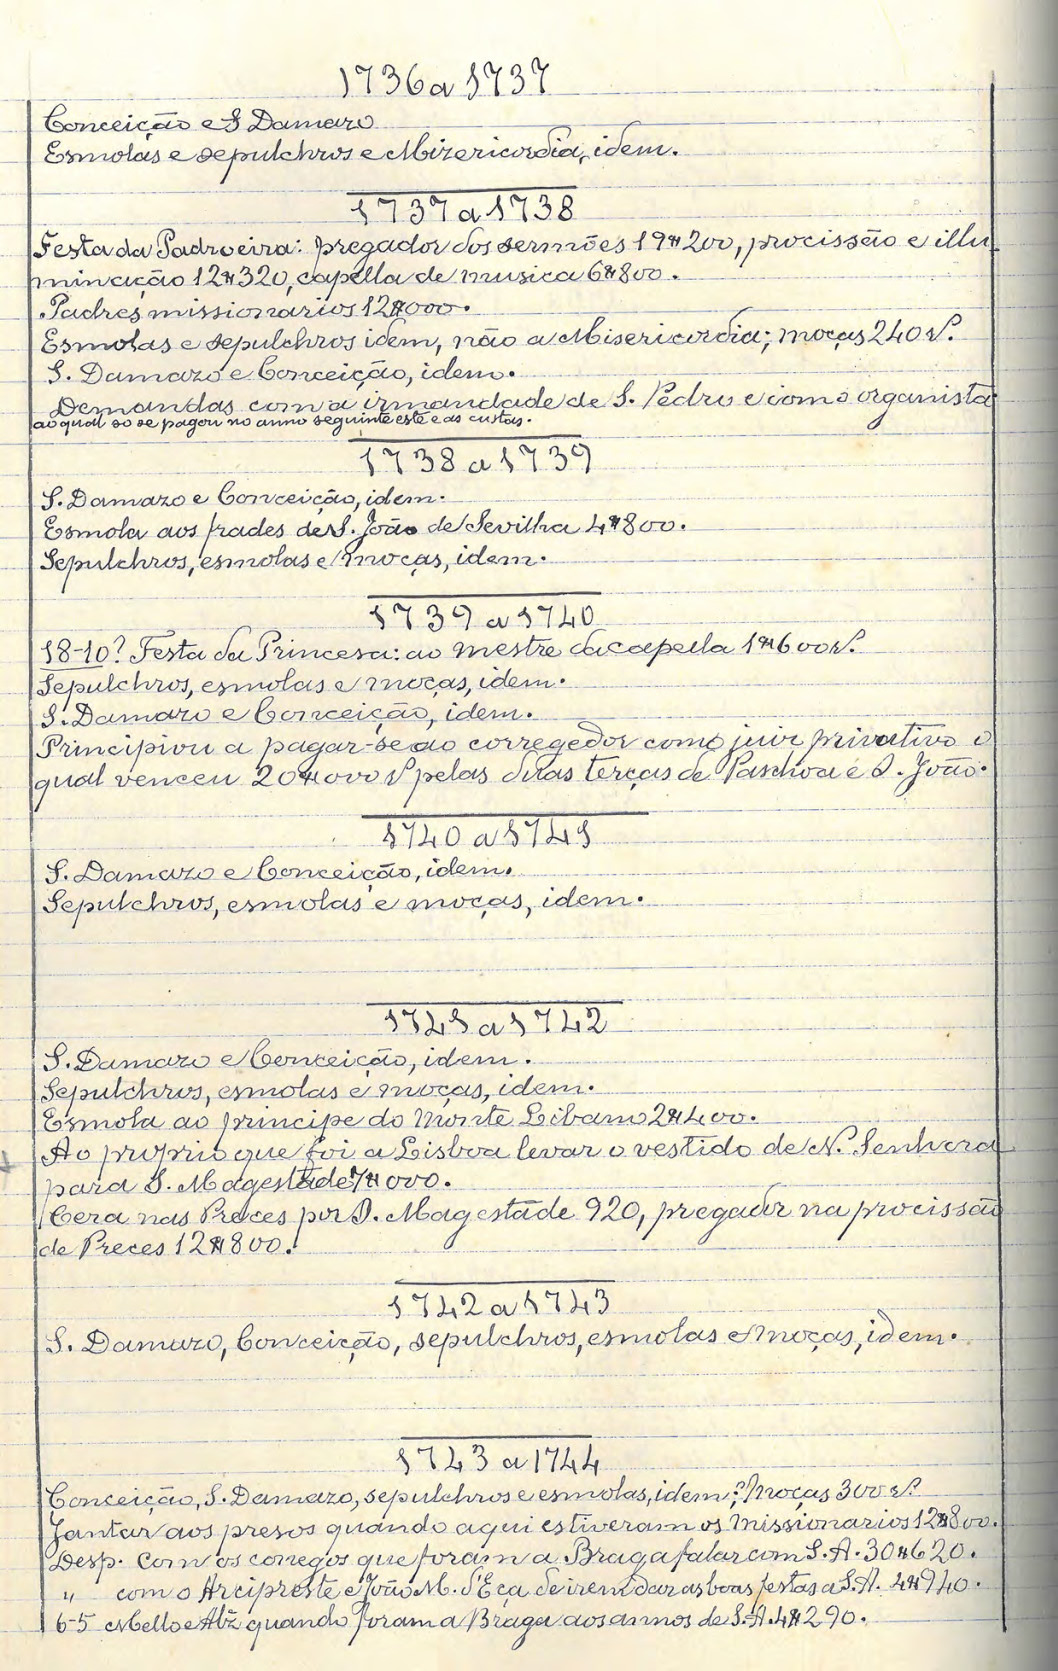 1736 a 1737
Conceição e S Damazo
Esmolas e sepulchros e Mizericordia, idem.
1737 a 1738
Festa da Padroeira: pregador dos sermões 19$200, procissão e illu
minação 12$320, capella de musica 6$800.
Padres missionarios 12$000.
Esmolas e sepulchros idem, não a Misericordia; moças 240 rs.
S. Damazo e Conceição, idem.
Demandas com a irmandade de S. Pedro e com o organista
ao qual so se pagou no anno seguinte este e as custas.
1738 a 1739
S. Damazo e Conceição, idem.
Esmola aos frades de S. João de Sevilha 4$800.
Sepulchros, esmolas e moças, idem.
1739 a 1740
18-10? Festa da Princesa: ao mestre da capella 1$600 rs.
Sepulchros, esmolas e moças, idem.
S. Damazo e Conceição, idem.
Principiou a pagar-se ao corregedor como juiz privativo o
qual venceu 20$000 rs pelas duas terças de Paschoa e S. João.
1740 a 1741
S. Damazo e Conceição, idem.
Sepulchros, esmolas e moças, idem.
1741 a 1742
S. Damazo e Conceição, idem.
Sepulchros, esmolas e moças, idem.
Esmola ao principe do Monte Libano 2$400.
Ao proprio que foi a Lisboa levar o vestido de N. Senhora
para S. Magestade 7$000.
Cera nas Preces por S. Magestade 920, pregador na procissão
de Preces 12$800.
1742 a 1743
S. Damazo, Conceição, sepulchros, esmolas e moças, idem.
1743 a 1744
Conceição, S. Damazo, sepulchros e esmolas, idem; Moças 300 rs.
Jantar aos presos quando aqui estiveram os missionarios 12$800.
Desp. com os conegos que foram a Braga falar com S. A. 30$620.
" com o Arcipreste e João M. d'Eça de irem dar as boas festas a S. A. 4$940.
6-5 Mello e Abz quando foram a Braga aos annos de S. A. 4$290.